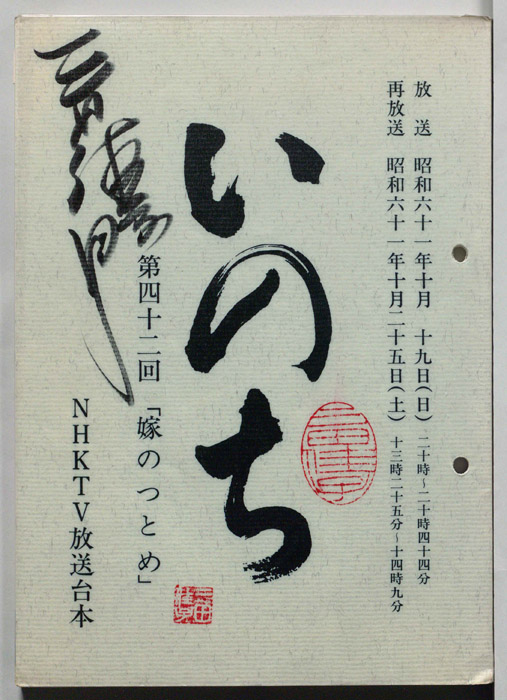 放送　昭和六十一年十月　十九日(日)　二十時～二十時四十四分
再放送　昭和六十一年十月二十五日(土)　十三時二十五分～十四時九分
いのち
第四十二回「嫁のつとめ」
NHKTV放送台本